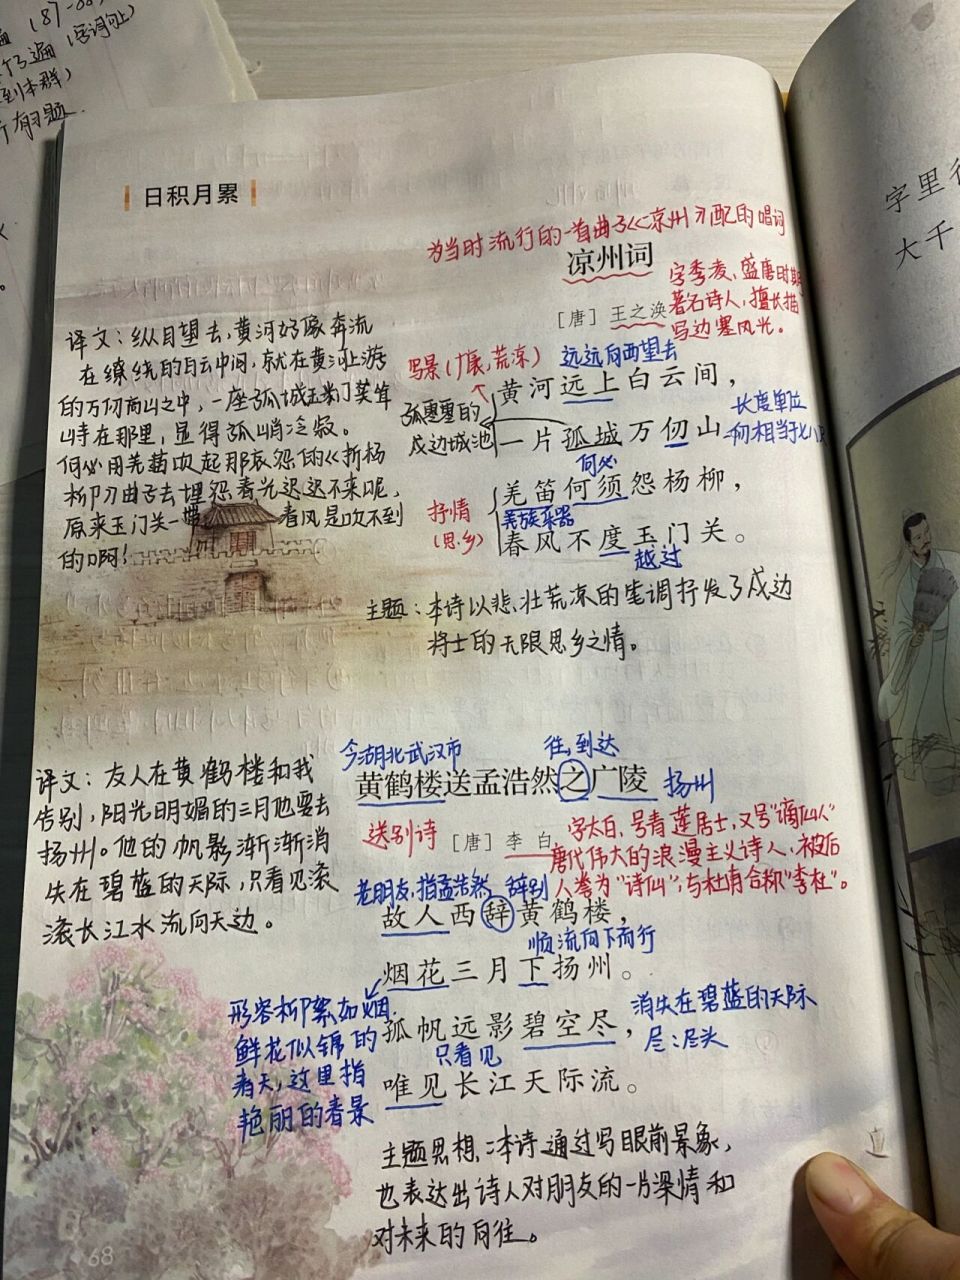 遍（87-88）
3遍（字词句上）
到本群）
有习题
字里行
大千
日积月累
为当时流行的一首曲子《凉州》配的唱词
凉州词
字季凌，盛唐时期
著名诗人，擅长描
写边塞风光。
［唐］王之涣
写景（广袤，荒凉）
远远向西望去
黄河远上白云间，
孤零零的
戍边城池
长度单位
一片孤城万仞山
一仞相当于七八尺
何必
羌笛何须怨杨柳，
抒情
（思乡）
羌族乐器
春风不度玉门关。
越过
译文：纵目望去，黄河好像奔流
在缭绕的白云中间，就在黄河上游
的万仞高山之中，一座孤城玉门关耸
峙在那里，显得孤峭冷寂。
何必用羌笛吹起那哀怨的《折杨
柳》曲子去埋怨春光迟迟不来呢，
原来玉门关一带春风是吹不到
的啊！
主题：本诗以悲壮荒凉的笔调抒发了戍边
将士的无限思乡之情。
今湖北武汉市
往，到达
黄鹤楼送孟浩然之广陵
扬州
送别诗
［唐］李白
字太白，号青莲居士，又号“谪仙人”
唐代伟大的浪漫主义诗人，被后
人誉为“诗仙”，与杜甫合称“李杜”。
老朋友，指孟浩然
辞别
故人西辞黄鹤楼，
顺流向下而行
烟花三月下扬州。
形容柳絮如烟、
鲜花似锦的
春天，这里指
艳丽的春景
孤帆远影碧空尽，
消失在碧蓝的天际
尽：尽头
只看见
唯见长江天际流。
译文：友人在黄鹤楼和我
告别，阳光明媚的三月他要去
扬州。他的帆影渐渐消
失在碧蓝的天际，只看见滚
滚长江水流向天边。
主题思想：本诗通过写眼前景象，
也表达出诗人对朋友的一片深情和
对未来的向往。
68